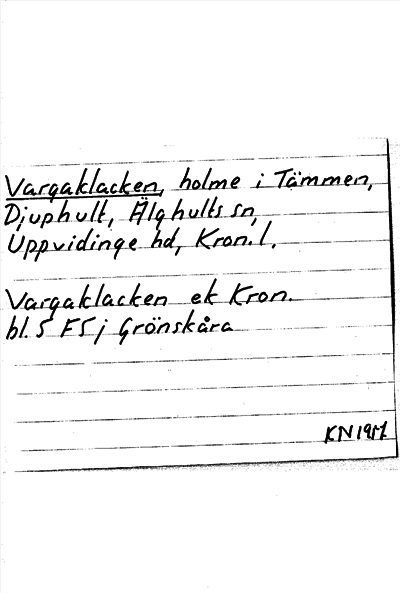 Vargaklacken, holme i Tämmen,
Djuphult, Älghults sn,
Uppvidinge hd, Kron. l.
Vargaklacken ek Kron.
bl. 5 F5j Grönskåra
KN 1951